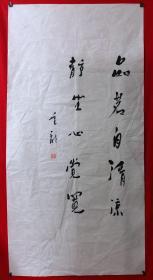 品茗自清凉
静坐心觉宽